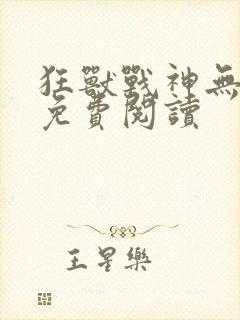 狂獸戰神無
免費閱讀
王星樂